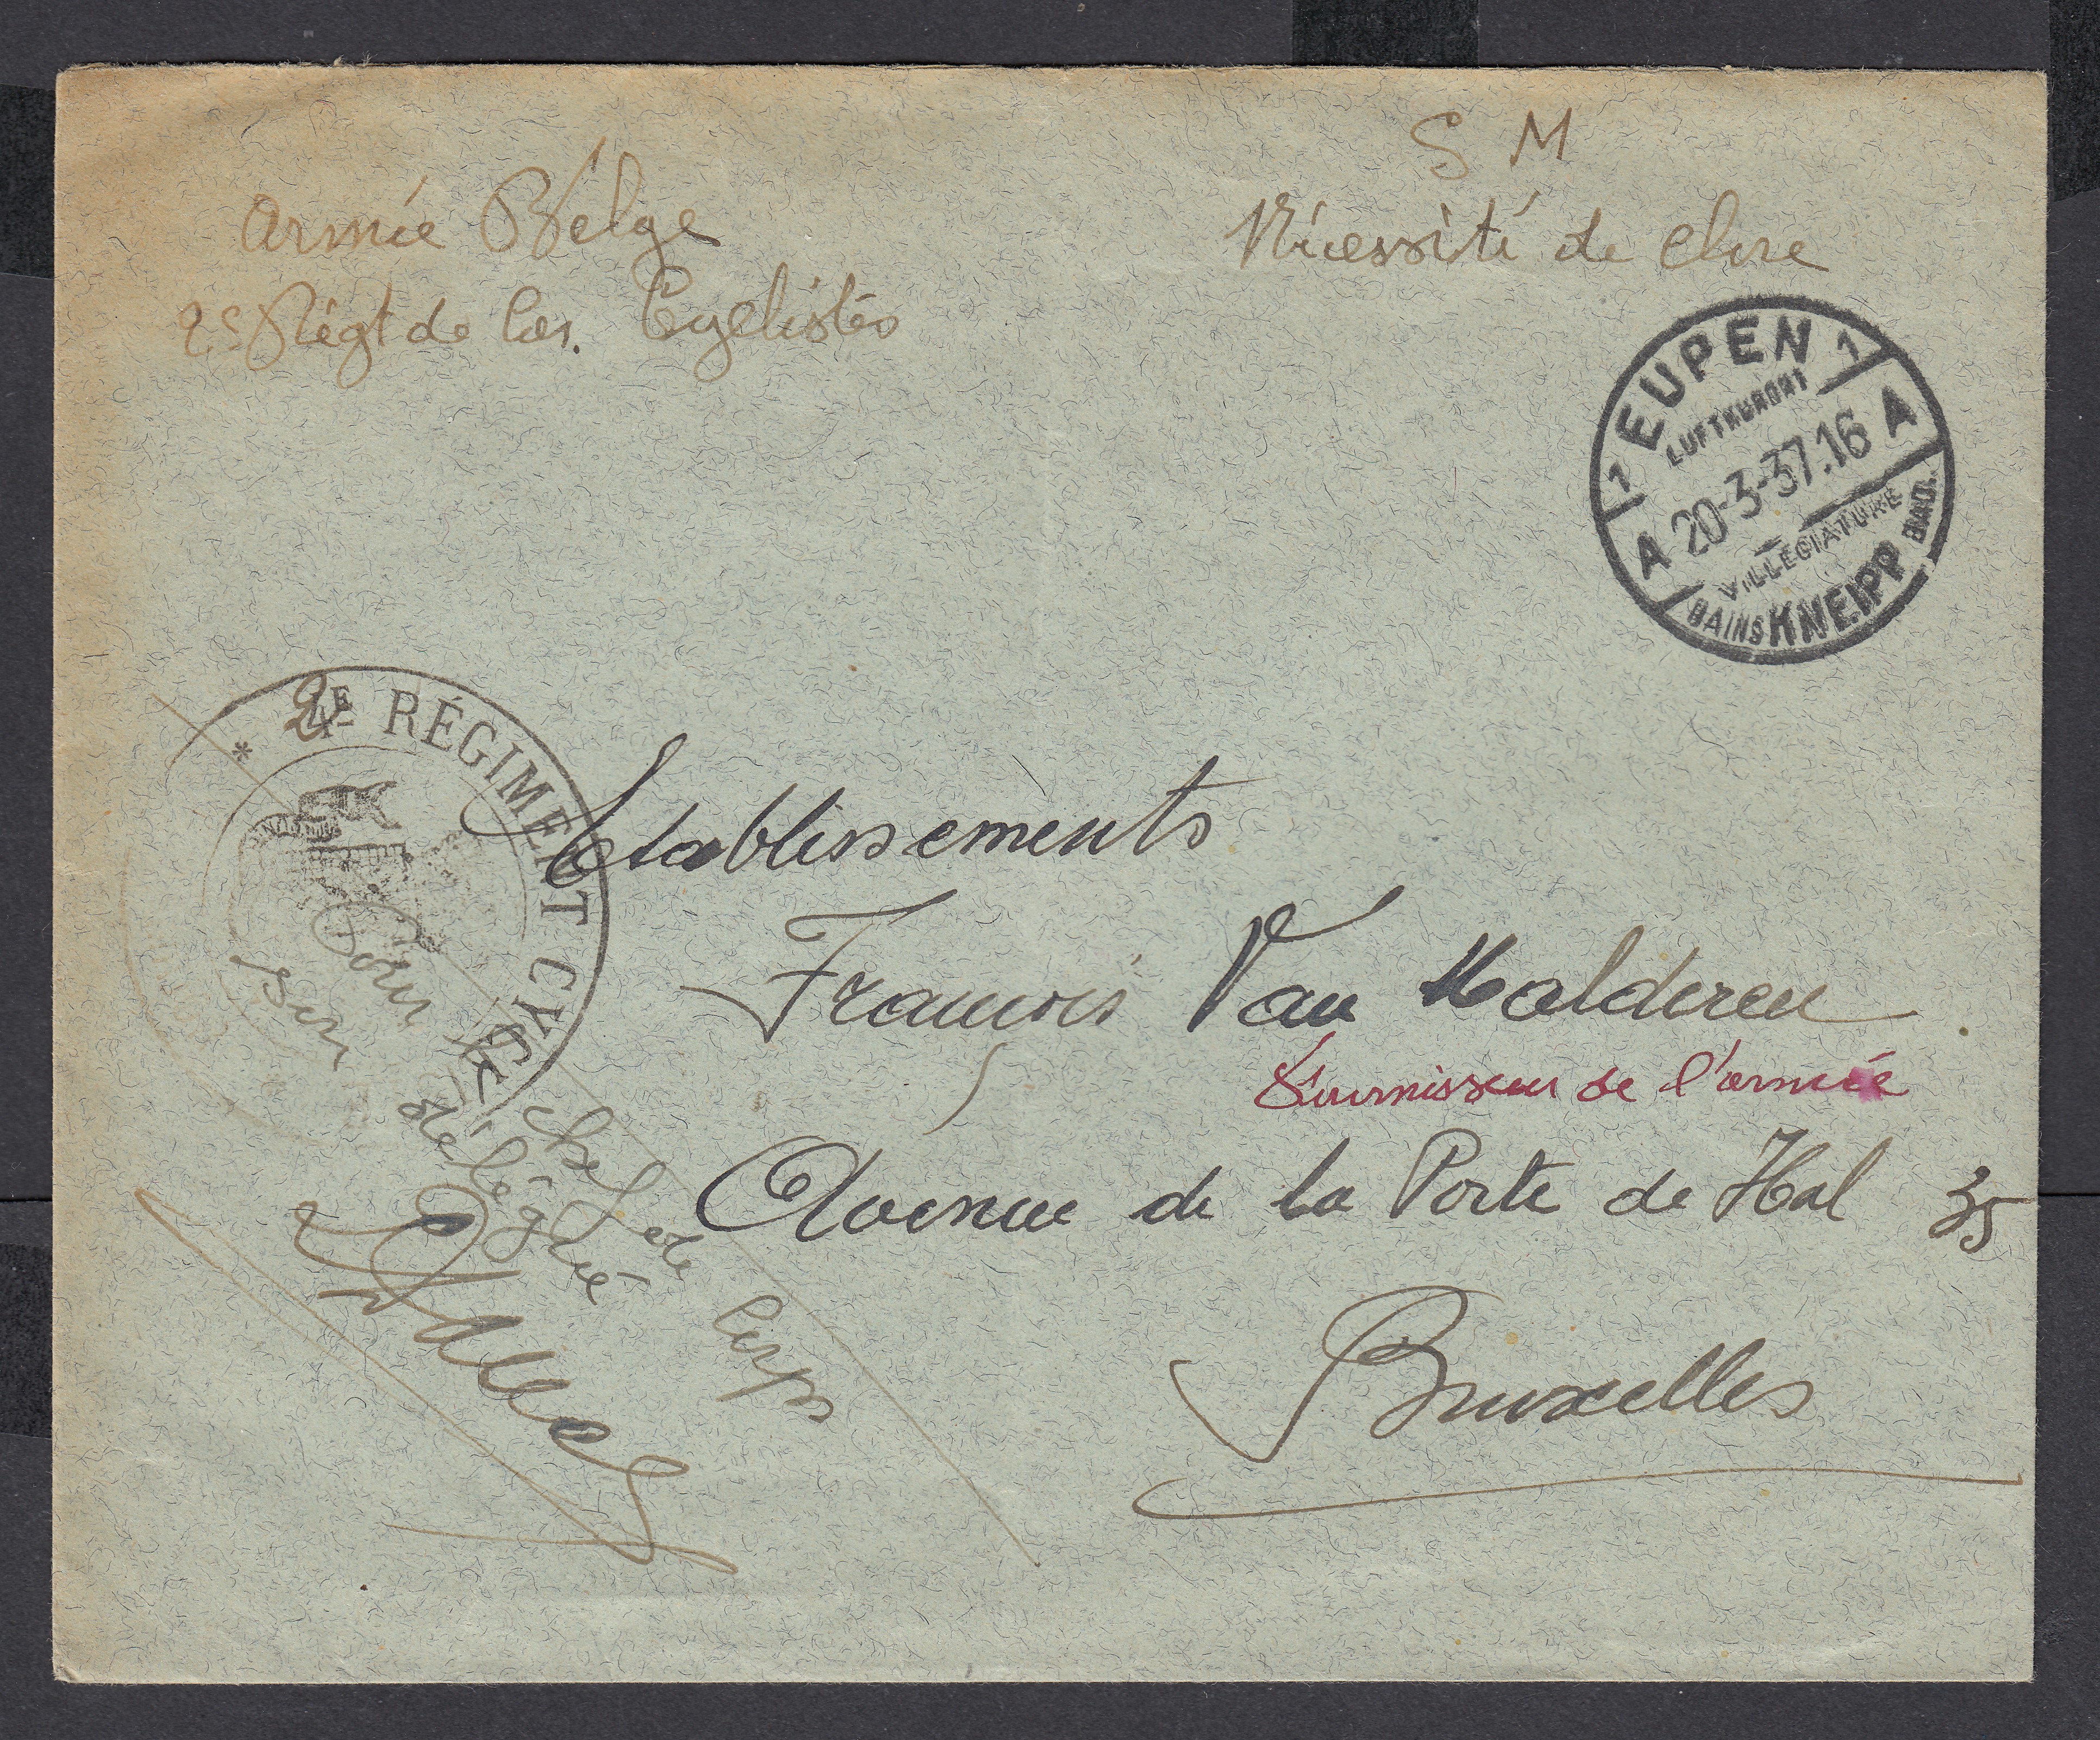 S M
Armée Belge
Nécessité de clore
2e Régt de Car. Cyclistes
1 EUPEN 1
LUFTKURORT
A 20-3-37.16 A
VILLEGIATURE
BAINS KNEIPP BAD.
* 2E RÉGIMENT CYCL
Etablissements
François Van Malderen
Fournisseur de l'armée
Avenue de la Porte de Hal 35
Bruxelles
Pour le chef de Corps
délégué